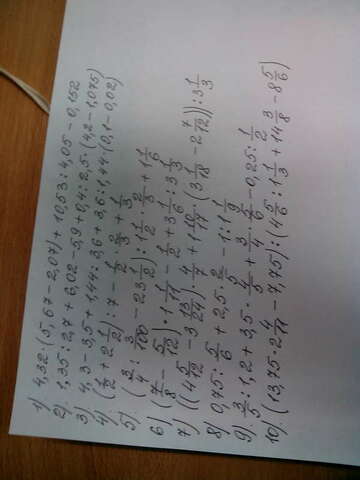 1) 4,32·(5,67-2,07)+10,53:4,05-0,152
2) 1,35:2,7+6,02-5,9+0,4:2,5·(4,2-1,075)
3) 4,3-3,5+1,44:3,6+3,6:1,44·(0,1-0,02)
4) (1/2+2 1/2):7-1/2·2/3+1/3
5) (3/4:3/100-23 1/2):1 1/2·2/3+1 1/6
6) (7/8-5/12)·1 1/11-1/2+3 1/6:3 1/3
7) ((4 5/12-3 13/24)·4/7+1 10/14·(3 1/18-2 7/12)):3 1/3
8) 0,75:5/6+2,5·2/5-1:1 1/9
9) 3/5:1,2+3,5·4/5+3/4·5/6-0,25:1/2
10) (13,75·2 4/11-7,75):(4 5/6:1 1/3+14 3/8-8 5/6)